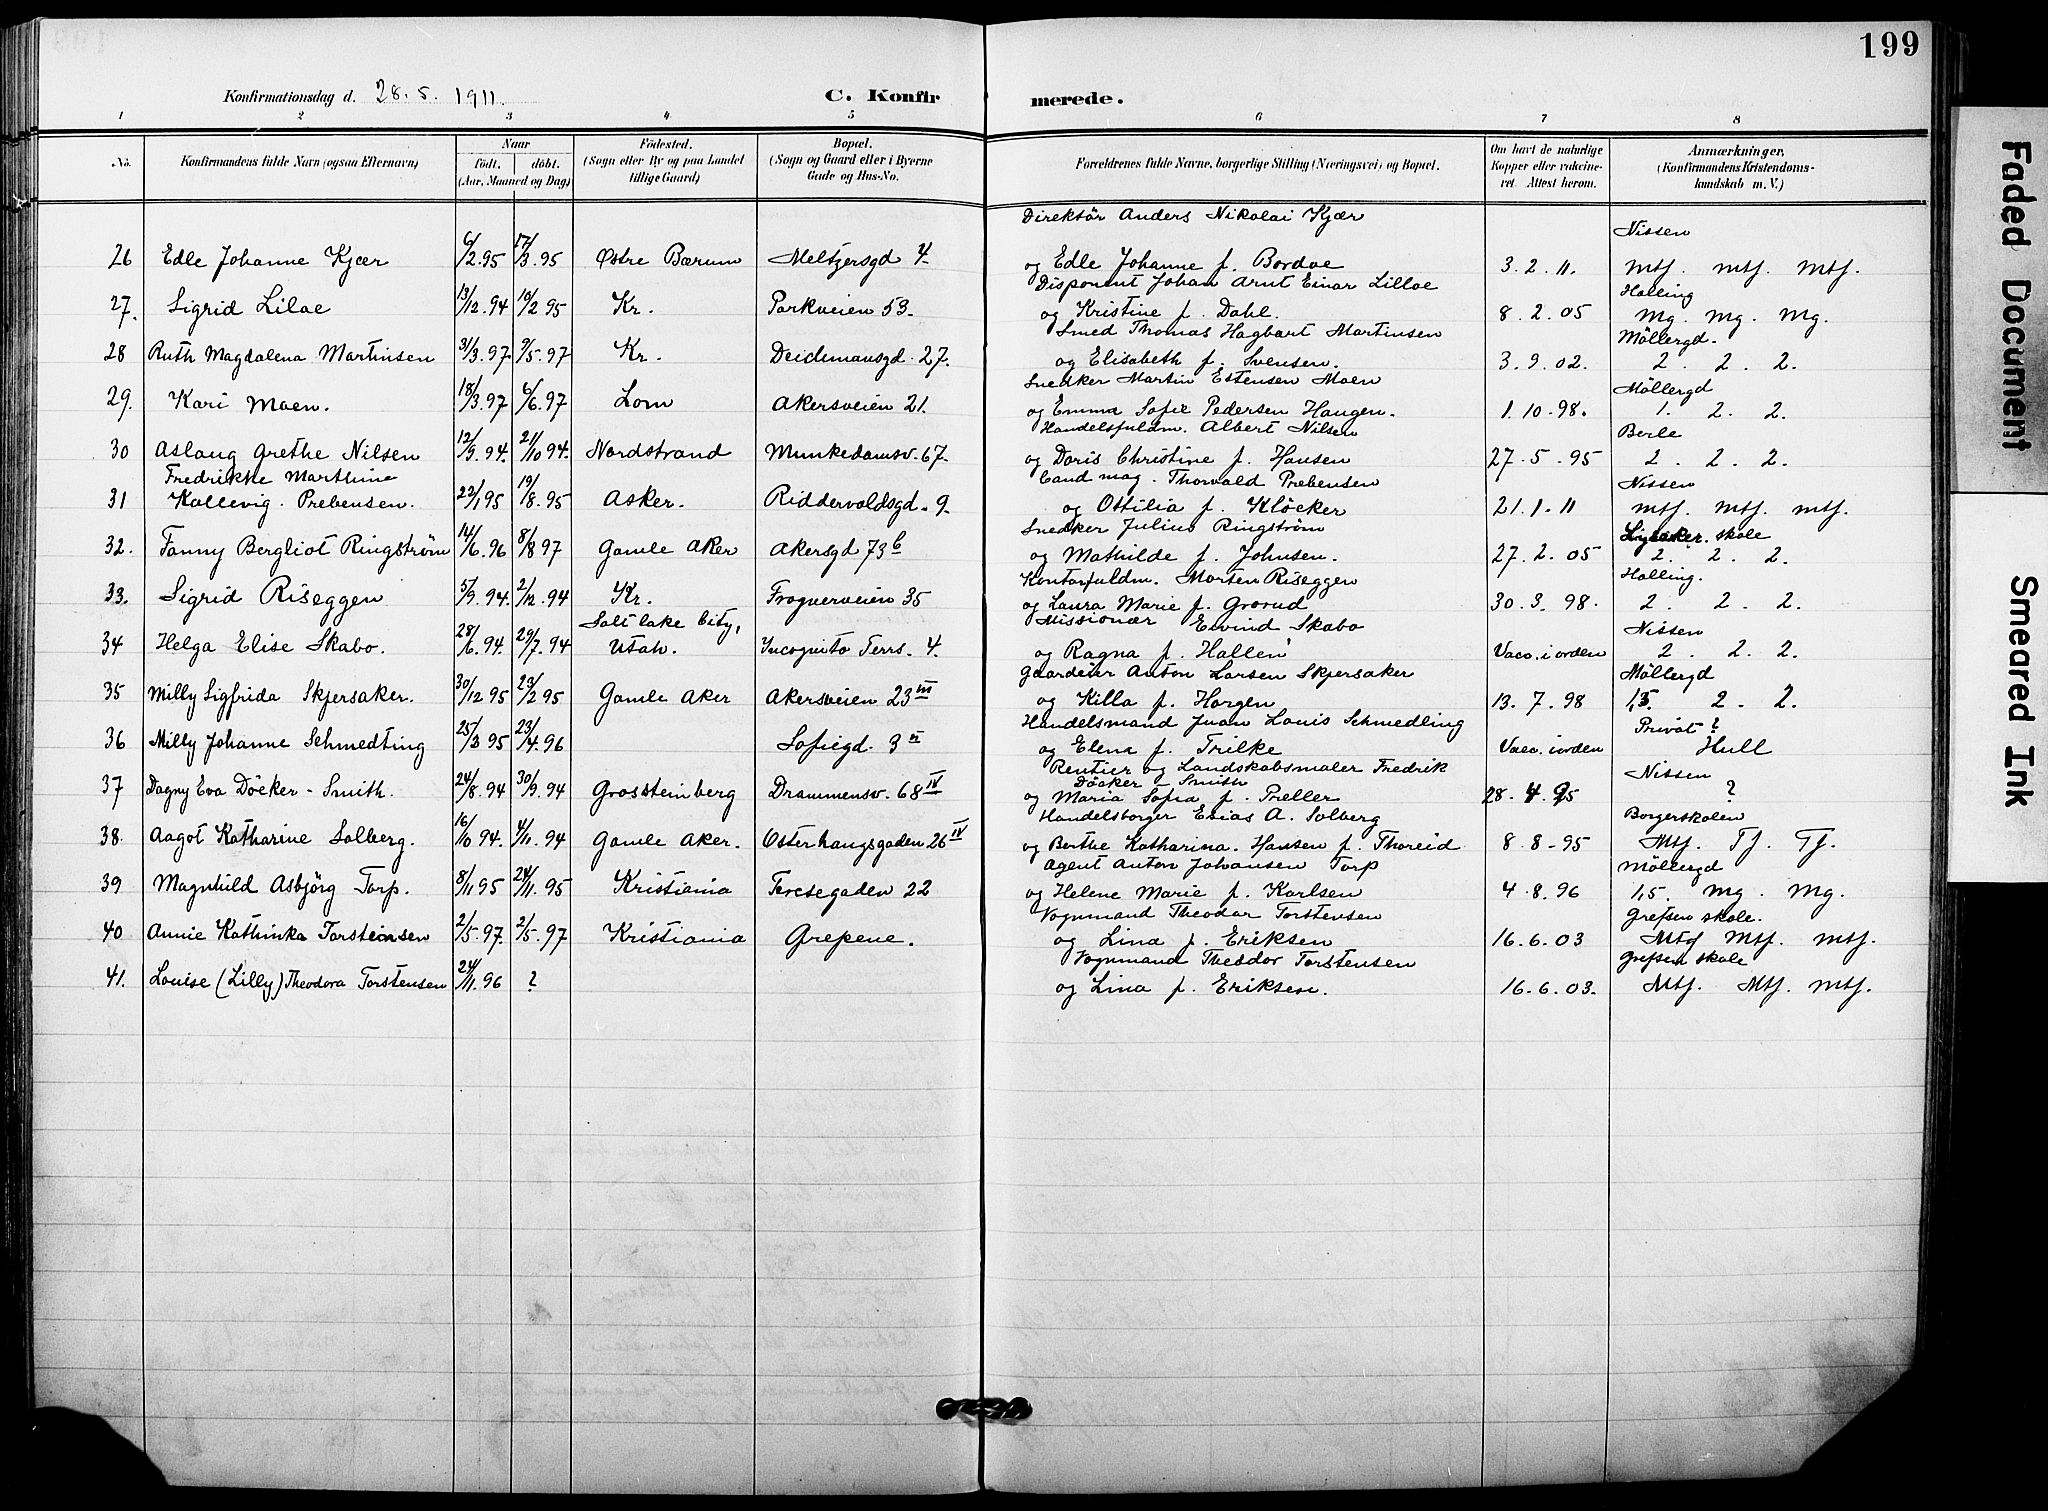 199
Konfirmationsdag d. 28. 5. 1911.
C. Konfirmerede.
1 2 3 4 5 6 7 8
No. Konfirmandens fulde Navn (ogsaa Efternavn) Naar født. døbt. (Aar, Maaned og Dag) Fødested. (Sogn eller By og paa Landet tillige Gaard) Bopæl. (Sogn og Gaard eller i Byerne Gade og Hus-No. Forældrenes fulde Navne, borgerlige Stilling (Næringsvei) og Bopæl. Om havt de naturlige Kopper eller vakcineret. Attest herom. Anmærkninger, (Konfirmandens Kristendomskundskab m. V.)
Direktör Anders Nikolai Kjær Nissen
26 Edle Johanne Kjær 6/2.95 17/3.95 Østre Bærum Meltzersgd 4. og Edle Johanne f. Bordoe 3. 2. 11. Mtf. Mtf. Mtf.
Disponent Johan Arnt Einar Lilloe Halling
27. Sigrid Liloe 13/12.94 10/2 95 Kr. Parkveien 53. og Kristine f. Dahl. 8. 2. 05 Mg. Mg. Mg.
Smed Thomas Hagbart Martinsen Möllergd.
28 Ruth Magdalena Martinsen 31/3.97 9/5.97 Kr. Deichmansgd. 27. og Elisabeth f. Svensen. 3. 9. 02. 2. 2. 2.
Snedker Martin Estensen Moen Möllergd
29. Kari Moen. 18/3.97 6/6.97 Lom Akersveien 21. og Emma Sofie Pedersen Haugen. 1. 10. 98. 1. 2. 2.
Handelsfuldm. Albert Nilsen Berle
30 Aslaug Grethe Nilsen 12/9.94. 21/10 94. Nordstrand Munkedamsv. 67. og Doris Christine f. Hansen 27. 5. 95 2. 2. 2.
Fredrikke Marthine Cand mag. Thorvald Prebensen Nissen
31 Kallevig Prebensen. 22/1 95 19/8.95 Asker. Riddervoldsgd. 9. og Ottilia f. Klöcker 21. 1. 11 Mtf. Mtf. Mtf.
Snedker Julius Ringström Lysaker skole
32. Fanny Bergliot Ringstrøm 14/6.96 8/8 97 Gamle Aker Akersgd 73 b og Mathilde f. Johnsen. 27. 2. 05 2. 2. 2.
Kontorfuldm. Morten Riseggen Halling.
33. Sigrid Riseggen 5/9.94. 2/12.94 Kr. Frognerveien 35 og Laura Marie f. Grorud 30. 3. 98. 2. 2. 2.
Salt lake City, Missionær Eivind Skabo Nissen
34 Helga Elise Skabo. 28/6.94. 29/7.94 Utah. Incognito Terrs. 4. og Ragna f. Hallén Vacc. i orden 2. 2. 2.
Gaardeier Anton Larsen Skjersaker Möllergd
35 Milly Sigfrida Skjersaker. 30/12 95 23/2 95 Gamle Aker Akersveien 23 III og Killa f. Horgen 13. 7. 98 1,5. 2. 2.
Handelsmand Juan Louis Schmedling Privat?
36 Milly Johanne Schmedling 25/3 95 23/4.96 Sofiegd. 3 II og Elena f. Trilke Vacc. i orden Hull
Rentier og Landskabsmaler Fredrik Nissen
Döcker Smith
37 Dagny Eva Döcker-Smith. 24/8.94 30/9.94 Grossteinberg Drammensv. 68 IV og Maria Sofia f. Preller 28. 4. 95 ?
Handelsborger Enias A. Solberg Borgerskolen
38. Aagot Katharine Solberg. 16/10 94. 4/11.94 Gamle Aker. Osterhausgaden 26 IV og Berthe Katharina Hansen f. Thoreid 8. 8. 95 Mtf. Tf. Tf.
Agent Anton Johansen Torp Möllergd
39 Magnhild Asbjörg Torp. 8/11 95 24/11.95 Kristiania Teresegaden 22 og Helene Marie f. Karlsen 4. 8. 96 1,5. Mg. Mg.
Vognmand Theodor Torstensen Grefsen skole.
40 Annie Kathinka Torsteinsen 2/5.97. 2/5.97 Kristiania Grepene. og Lina f. Eriksen 16. 6. 03 Mtf Mtf. Mtf.
Vognmand Theodor Torstensen Grefsen skole
41. Louise (Lilly) Theodora Torstensen 24/11.96 ? og Lina f. Eriksen. 16. 6. 03. Mtf. Mtf. Mtf.
Faded Document
Smeared Ink